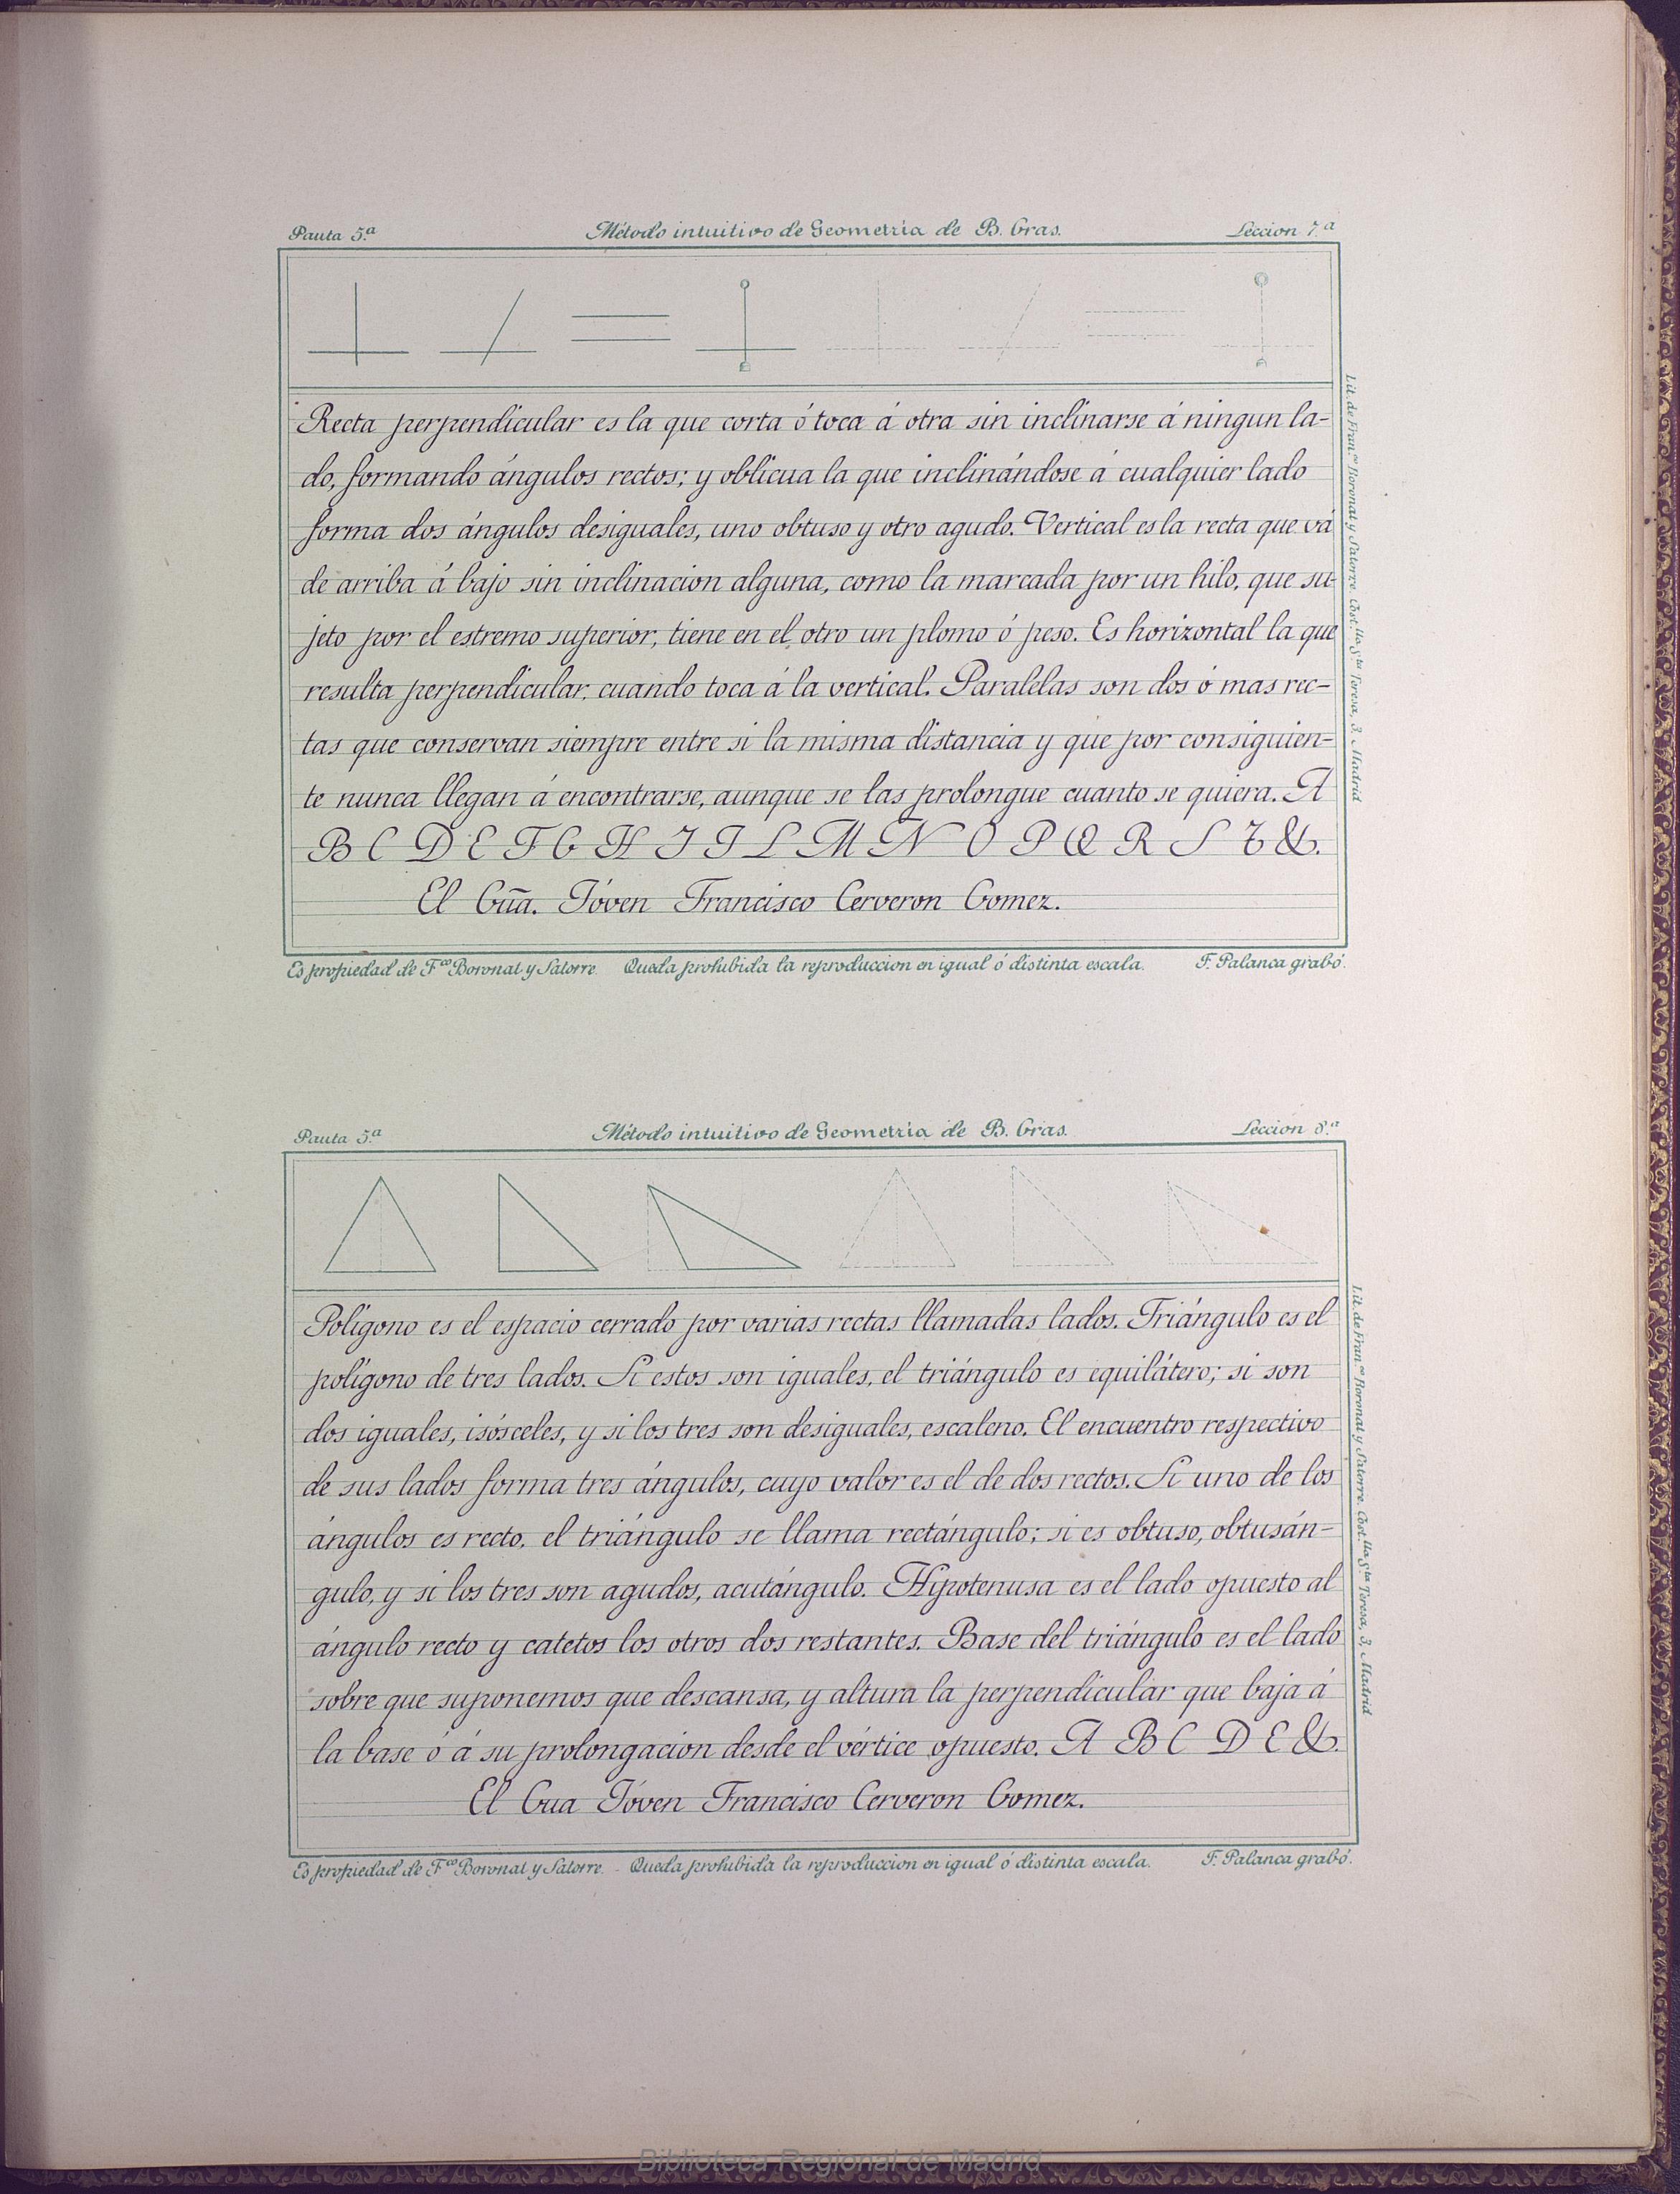 Pauta 5.ª Método intuitivo de Geometría de B. Gras. Leccion 7.ª
Recta perpendicular es la que corta ó toca á otra sin inclinarse á ningun la-
do, formando ángulos rectos; y oblicua la que inclinándose á cualquier lado
forma dos ángulos desiguales, uno obtuso y otro agudo. Vertical es la recta que vá
de arriba á bajo sin inclinacion alguna, como la marcada por un hilo, que su-
jeto por el estremo superior, tiene en el otro un plomo ó peso. Es horizontal la que
resulta perpendicular, cuando toca á la vertical. Paralelas son dos ó mas rec-
tas que conservan siempre entre si la misma distancia y que por consiguien-
te nunca llegan á encontrarse, aunque se las prolongue cuanto se quiera. A
B C D E F G H I J L M N O P Q R S T &.
El Gũa. Jóven Francisco Cerveron Gomez.
Es propiedad de F.co Boronat y Satorre. Queda prohibida la reproduccion en igual ó distinta escala. F. Palanca grabó.
Lit. de Fran.co Boronat y Satorre. Cost.lla S.ta Teresa, 3. Madrid
Pauta 5.ª Método intuitivo de Geometría de B. Gras. Leccion 8.ª
Polígono es el espacio cerrado por varias rectas llamadas lados. Triángulo es el
polígono de tres lados. Si estos son iguales, el triángulo es equilátero; si son
dos iguales, isósceles, y si los tres son desiguales, escaleno. El encuentro respectivo
de sus lados forma tres ángulos, cuyo valor es el de dos rectos. Si uno de los
ángulos es recto, el triángulo se llama rectángulo; si es obtuso, obtusán-
gulo, y si los tres son agudos, acutángulo. Hipotenusa es el lado opuesto al
ángulo recto y catetos los otros dos restantes. Base del triángulo es el lado
sobre que suponemos que descansa, y altura la perpendicular que baja á
la base ó á su prolongacion desde el vértice opuesto. A B C D E &.
El Gua Jóven Francisco Cerveron Gomez.
Es propiedad de F.co Boronat y Satorre. - Queda prohibida la reproduccion en igual ó distinta escala. F. Palanca grabó.
Lit. de Fran.co Boronat y Satorre. Cost.lla S.ta Teresa, 3, Madrid
Biblioteca Regional de Madrid